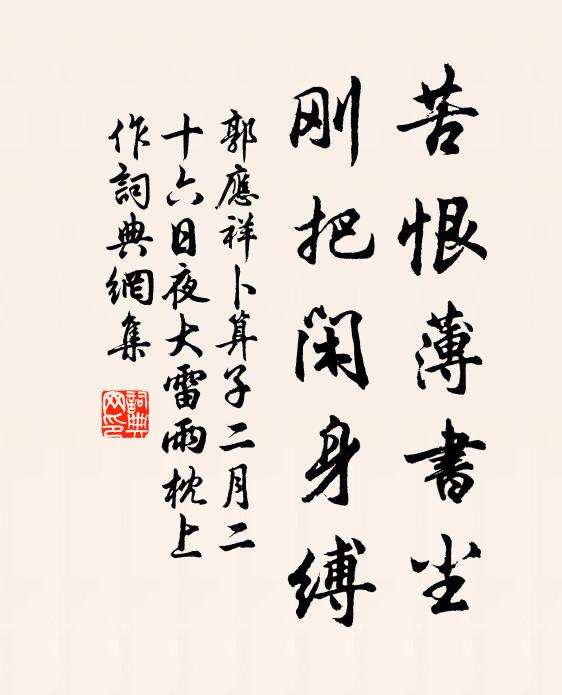 苦恨薄書尘
刚把闲身縛
郭應祥卜算子二月二
十六日夜大雷雨枕上
作詞典網集
詞典网印